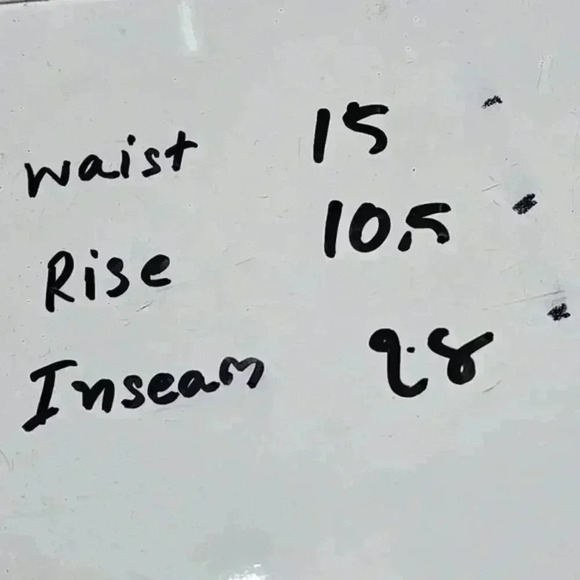 Waist 15
Rise 10.5
Inseam 9.8